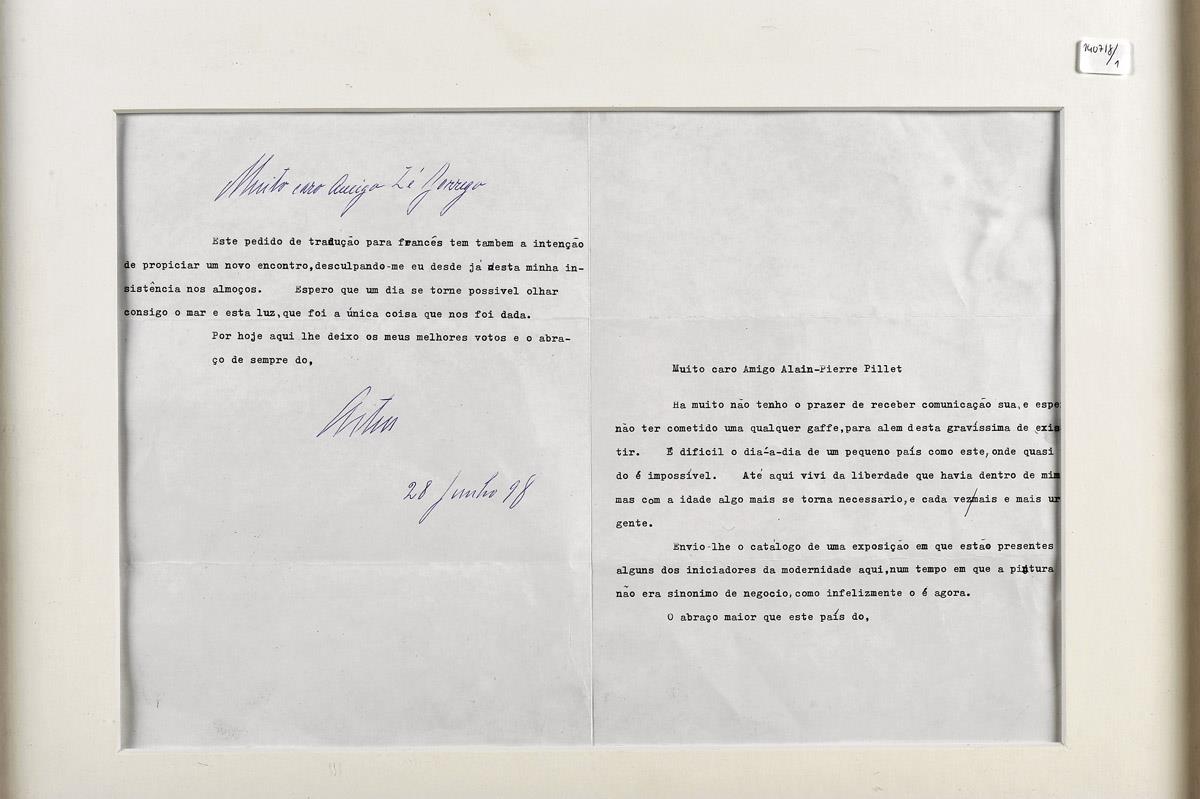 140718/1
Muito caro Amigo Zé Borrego
Este pedido de tradução para francês tem tambem a intenção
de propiciar um novo encontro,desculpando-me eu desde já desta minha in-
sistência nos almoços. Espero que um dia se torne possivel olhar
consigo o mar e esta luz,que foi a única coisa que nos foi dada.
Por hoje aqui lhe deixo os meus melhores votos e o abra-
ço de sempre do,
Artur
28 Junho 98
Muito caro Amigo Alain-Pierre Pillet
Ha muito não tenho o prazer de receber comunicação sua,e espe
não ter cometido uma qualquer gaffe,para alem desta gravíssima de exis
tir. É dificil o dia-a-dia de um pequeno país como este,onde quasi
do é impossível. Até aqui vivi da liberdade que havia dentro de mim
mas com a idade algo mais se torna necessario,e cada vez/mais e mais ur
gente.
Envio-lhe o catálogo de uma exposição em que estão presentes
alguns dos iniciadores da modernidade aqui,num tempo em que a pintura
não era sinonimo de negocio,como infelizmente o é agora.
O abraço maior que este país do,